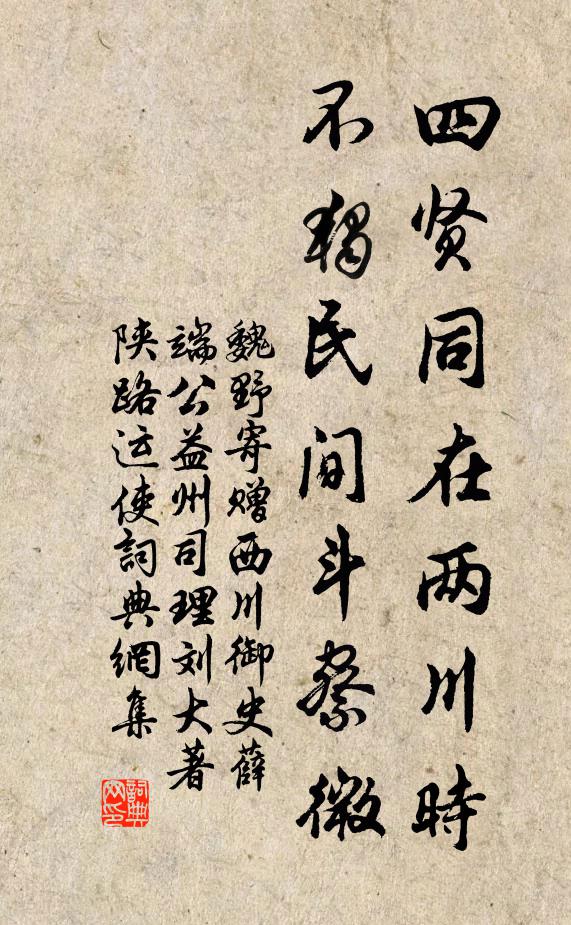 四贤同在两川時
不独民间斗察微
魏野寄赠西川御史薛
端公益州司理刘大著
陕路运使詞典網集
詞典
网印